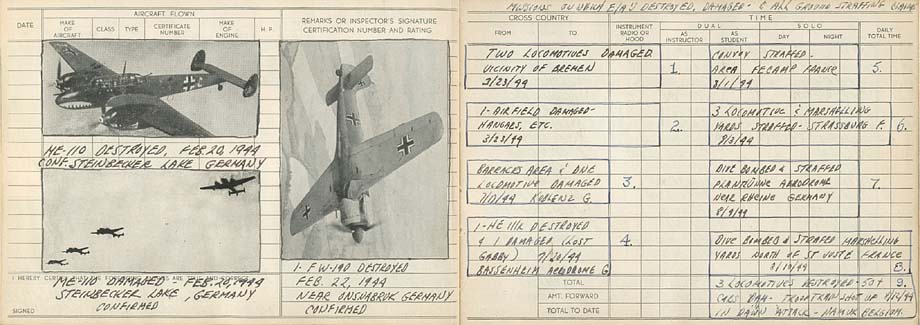 AIRCRAFT FLOWN
DATE
MAKE OF AIRCRAFT
CLASS
TYPE
CERTIFICATE NUMBER
MAKE OF ENGINE
H.P.
REMARKS OR INSPECTOR'S SIGNATURE
CERTIFICATION NUMBER AND RATING
ME-110 DESTROYED, FEB. 20, 1944
CONF. STEINBECKER LAKE, GERMANY
I HEREBY CERTIFY THAT THE FOREGOING ENTRIES ARE TRUE AND CORRECT
ME-110 DAMAGED - FEB. 20, 1944
STEINBECKER LAKE, GERMANY
CONFIRMED
SIGNED
1- FW-190 DESTROYED
FEB. 22, 1944
NEAR GERMANY
CONFIRMED
MISSIONS ON WHICH E/A'S DESTROYED, DAMAGED - & ALL GROUND STRAFFING
CROSS COUNTRY
TIME
FROM
TO
INSTRUMENT RADIO OR HOOD
DUAL
AS INSTRUCTOR
AS STUDENT
SOLO
DAY
NIGHT
DAILY TOTAL TIME
TWO LOCOMOTIVES DAMAGED
VICINITY OF BREMEN
3/23/44
1.
CONVOY STRAFFED -
AREA FECAMP FRANCE
5.
1- AIRFIELD DAMAGED-
HANGARS, ETC.
3/23/44
2.
3 LOCOMOTIVE & MARSHELLING
YARDS STRAFFED - STRASSBURG F.
8/3/44
6.
BARRACKS AREA & ONE
LOCOMOTIVE DAMAGED
KOBLENZ G.
3.
DIVE BOMBED & STRAFFED
AERODROME
NEAR RHEINE GERMANY
7.
1-HE 111K DESTROYED
& 1 DAMAGED (LOST
GABBY) 7/20/44
BASSENHEIM AERODROME G
4.
DIVE BOMBED & STRAFED MARSHELLING
YARDS NORTH OF ST FRANCE
8.
TOTAL
AMT. FORWARD
TOTAL TO DATE
3 LOCOMOTIVES DESTROYED - 50+
9.
CARS DAM - TROOP TRAIN SHOT UP
IN DAWN ATTACK - NAMUR BELGIUM.